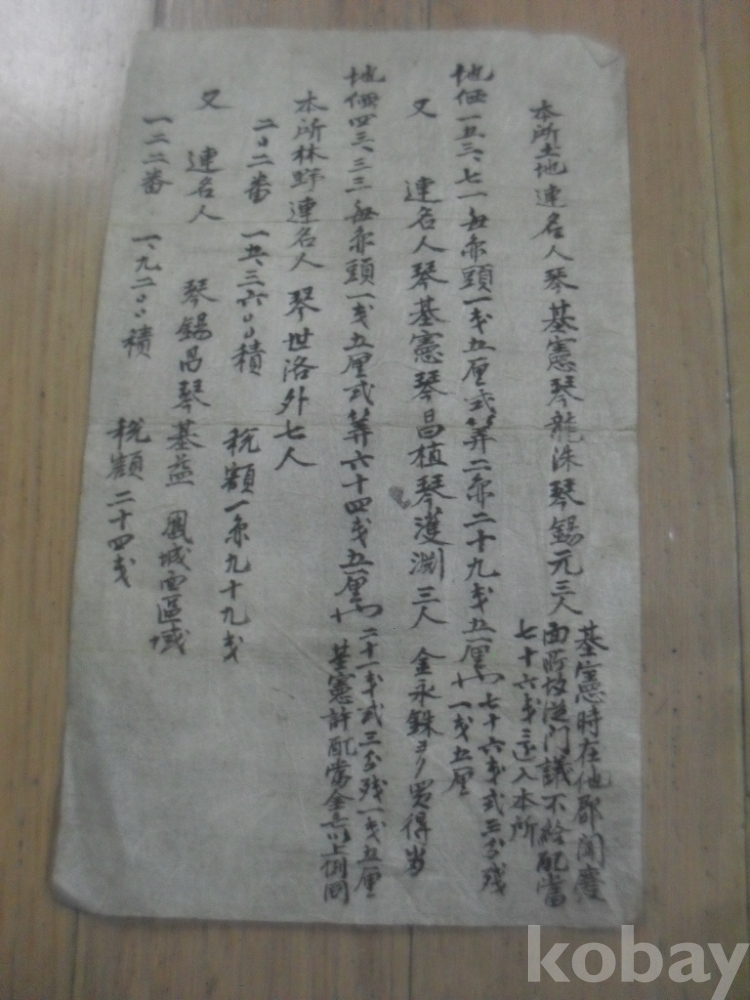 本所土地連名人琴基憲琴龍洙琴錫元三人
基憲時在他郡聞慶
面所故從门議不給配當
七十六戋還入本所
地価一五三、七一每亦頭一戋五厘式筭二亦二十九戋五厘
七十六戋式三分残
十一戋五厘
又 連名人琴基憲琴昌植琴濩淵三人 金永銖ヨリ買得
地価四三、三三每亦頭一戋五厘式筭六十四戋五厘
二十一戋式三分残一戋五厘
基憲許配當金上例同
本所林野連名人琴世洛外七人
二〇二番 一五、三六〇〇積 税額一亦九十九戋
又 連名人 琴錫昌琴基益 鳳城面區域
一二二番 一、九二〇〇積 税額二十四戋
kobay